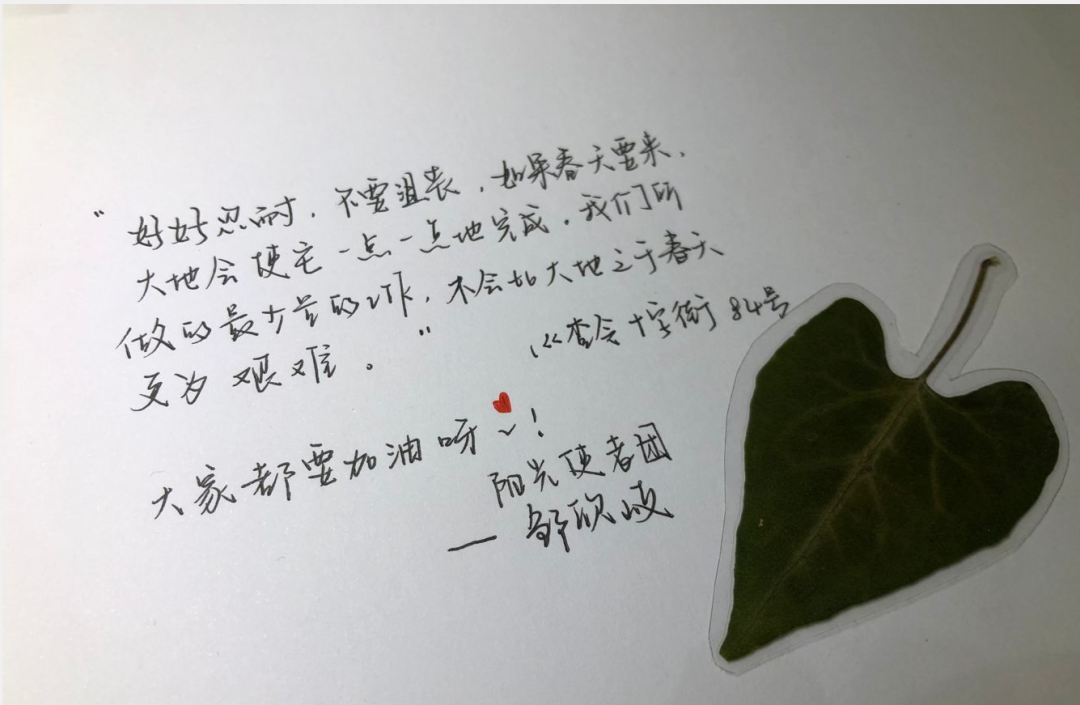 “好好忍耐，不要沮丧，如果春天要来，
大地会使它一点一点地完成，我们所
做的最少量的工作，不会比大地之于春天
更为艰难。”
《查令十字街84号
大家都要加油呀~！
阳光使者团
— 舒欣岐